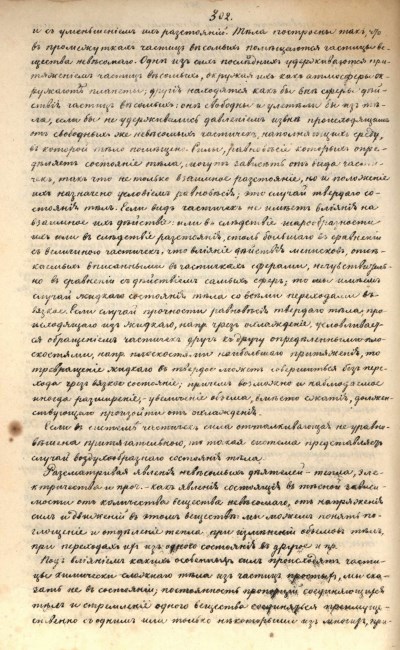 302.
и съ уменьшеніемъ ихъ разстояній. Тѣла построены такъ, что
въ промежуткахъ частицъ вѣсомыхъ помѣщаются частицы ве-
щества невѣсомаго. Одни изъ сихъ послѣднихъ удерживаются при-
тяженіемъ частицъ вѣсомыхъ, окружая ихъ какъ атмосферы ок-
ружаютъ планеты; другія находятся какъ бы внѣ сферы дѣй-
ствія частицъ вѣсомыхъ: онѣ свободны и улетали бы изъ тѣ-
ла, если бы не удерживались давленіемъ извнѣ происходящимъ
отъ свободныхъ же невѣсомыхъ частичекъ, наполняющихъ среду,
въ которой тѣло помѣщено. Силы, равновѣсіе которыхъ опре-
дѣляетъ состояніе тѣла, могутъ зависѣть отъ вида части-
чекъ, такъ что не только взаимное разстояніе, но и положеніе
ихъ назначено условіемъ равновѣсія; это случай твердаго со-
стоянія тѣлъ. Если видъ частичекъ не имѣетъ вліянія на
взаимное ихъ дѣйствіе: или въ слѣдствіе шарообразности
ихъ или въ слѣдствіе разстоянія, столь большаго въ сравненіи
съ величиною частичекъ, что вліяніе дѣйствія менисковъ, отсѣ-
каемыхъ вписанными въ частичкахъ сферами, нечувствитель-
но въ сравненіи съ дѣйствіемъ самыхъ сферъ; то мы имѣемъ
случай жидкаго состоянія тѣла со всѣми переходами въ
вязкое. Если случай прочности равновѣсія твердаго тѣла, про-
исходящаго изъ жидкаго, напр чрезъ охлажденіе, условливает-
ся обращеніемъ частичекъ другъ къ другу опредѣленными пло-
скостями, напр плоскостями наибольшаго притяженія, то
превращеніе жидкаго въ твердое можетъ совершиться безъ пере-
хода чрезъ вязкое состояніе; причемъ возможно и наблюдаемое
иногда расширеніе, увеличеніе объема, вмѣсто сжатія, должен-
ствующаго произойти отъ охлажденія.
Если въ системѣ частичекъ сила отталкивающая не уравно-
вѣшена притягательною, то такая система представляетъ
случай воздухообразнаго состоянія тѣла.
Разсматривая явленія невѣсомыхъ дѣятелей – тепла, элек-
тричества и проч. – какъ явленія состоящія въ тѣсной зависи-
мости отъ количества вещества невѣсомаго, отъ напряженія
силъ и движеній въ этомъ веществѣ мы можемъ понять по-
глощеніе и отдѣленіе тепла при измѣненіи объемовъ тѣлъ,
при переходахъ ихъ изъ одного состоянія въ другое и пр.
Подъ вліяніемъ какихъ особенныхъ силъ происходятъ части-
цы химически сложнаго тѣла изъ частицъ простыхъ, мы ска-
зать не въ состояніи; постоянность пропорцій соединяющихся
тѣлъ и стремленіе одного вещества соединяться преимуще-
ственно съ однимъ или только нѣкоторыми изъ многихъ, при-